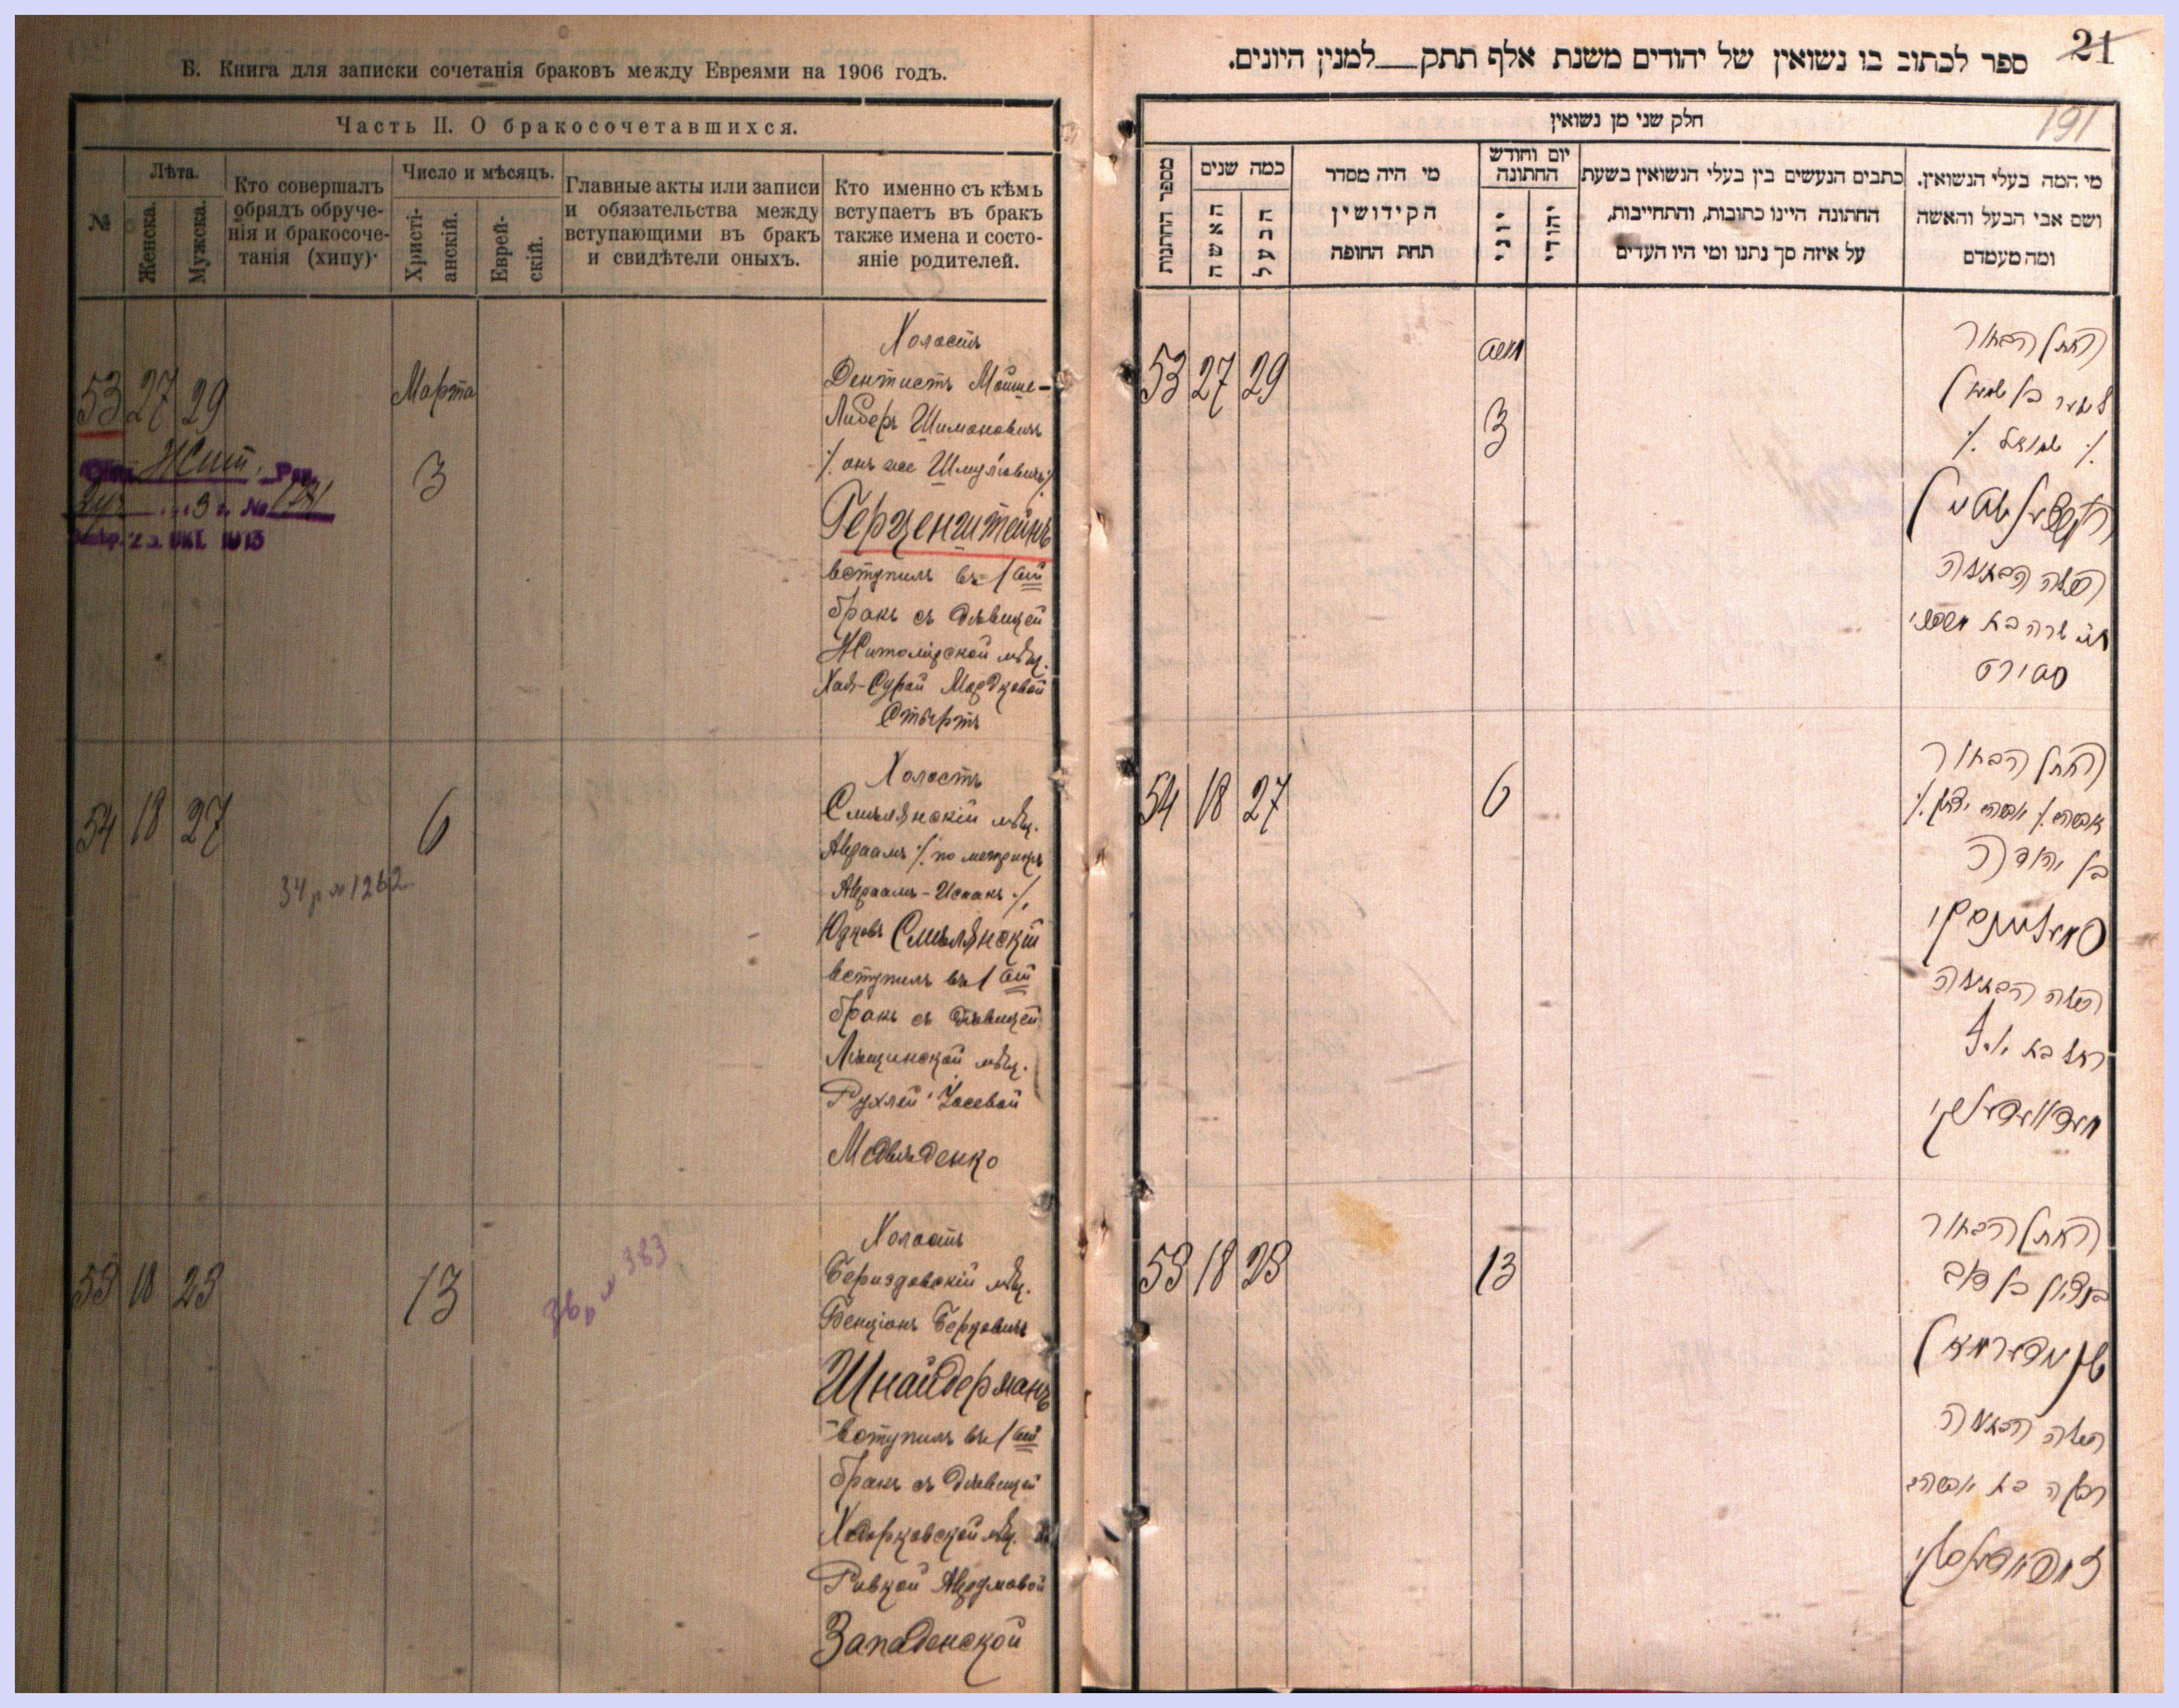 Б. Книга для записки сочетанія браковъ между Евреями на 1906 годъ.
Часть II. О бракосочетавшихся.
№
Лѣта.
Женска.
Мужска.
Кто совершалъ
обрядъ обруче-
нія и бракосоче-
танія (хипу)
Число и мѣсяцъ.
Христі-
анскій.
Еврей-
скій.
Главные акты или записи
и обязательства между
вступающими въ бракъ
и свидѣтели оныхъ.
Кто именно съ кѣмъ
вступаетъ въ бракъ
также имена и состо-
яніе родителей.
53 27 29
Марта
3
Холостъ
Дентистъ Мойше-
Либеръ Шимоновичъ
/. онъ же Шмулiовичъ ./
Герценштейнъ
вступилъ въ 1ый
бракъ съ дѣвицей
Житомiрской мѣщ.
Хая-Сурой Мордковой
54 18 27
6
34 р № 1262
Холостъ
Смѣлянскій мѣщ.
Авраамъ /. по метрикѣ
Авраамъ-Исаакъ ./
Юдковъ Смѣлянскій
вступилъ въ 1ый
бракъ съ дѣвицей
мѣщ.
Рухлей Iосевой
55 18 23
13
36 р № 383
Холостъ
Бериздовскій мѣщ.
Бенціонъ Берковичъ
Шнайдерманъ
вступилъ въ 1ый
бракъ съ дѣвицей
Ходорковской мѣщ.
Ривкой Аврумовой
Западенской
21
ספר לכתוב בו נשואין של יהודים משנת אלף תתק—למנין היונים.
191
חלק שני מן נשואין
מספר החתונות
כמה שנים
האשה
הבעל
מי היה מסדר
הקידושין
תחת החופה
יום וחודש
החתונה
יוני
יהודי
כתבים הנעשים בין בעלי הנשואין בשעת
החתונה היינו כתובות, והתחייבות,
על איזה סך נתנו ומי היו העדים
מי המה בעלי הנשואין.
ושם אבי הבעל והאשה
ומה מעמדם
53 27 29
3
החתן הבחור
ליבער בן שמעון
/. שמואל ./
הערצענשטיין
הכלה הבתולה
חי' שרה בת מרדכי
54 18 27
6
החתן הבחור
אברהם /. אברהם יצחק ./
בן יהודה
סמעליאנסקי
הכלה הבתולה
רחל בת יוסף
55 18 23
13
החתן הבחור
בנציון בן דוב
שניידערמאן
הכלה הבתולה
רבקה בת אברהם